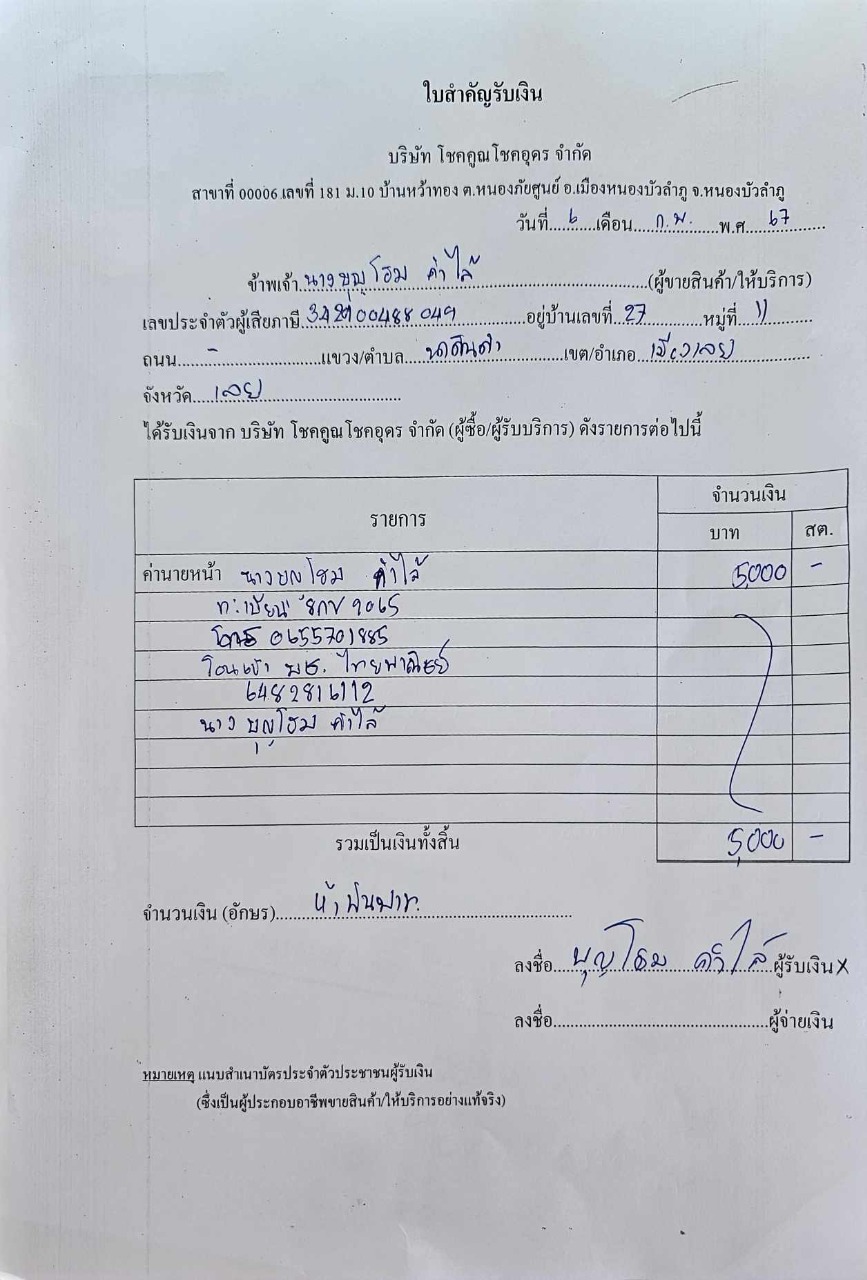 ใบสำคัญรับเงิน
บริษัท โชคคูณโชคอุดร จำกัด
สาขาที่ 00006 เลขที่ 181 ม.10 บ้านหว้าทอง ต.หนองภัยศูนย์ อ.เมืองหนองบัวลำภู จ.หนองบัวลำภู
วันที่ 6 เดือน ก.พ. พ.ศ 67
ข้าพเจ้า นางบุญโฮม คำไล้ (ผู้ขายสินค้า/ให้บริการ)
เลขประจำตัวผู้เสียภาษี อยู่บ้านเลขที่ 27 หมู่ที่ 11
ถนน - แขวง/ตำบล นาดินดำ เขต/อำเภอ เมืองเลย
จังหวัด เลย
ได้รับเงินจาก บริษัท โชคคูณโชคอุดร จำกัด (ผู้ซื้อ/ผู้รับบริการ) ดังรายการต่อไปนี้
รายการ จำนวนเงิน
บาท สต.
ค่านายหน้า นางบุญโฮม คำไล้ 5,000 -
ทะเบียน 9065
โทร 0655701885
โอนเข้า ไทยพาณิชย์
6482816112
นาง บุญโฮม คำไล้
รวมเป็นเงินทั้งสิ้น 5,000 -
จำนวนเงิน (อักษร) ห้าพันบาท
ลงชื่อ บุญโฮม คำไล้ ผู้รับเงิน X
ลงชื่อ ผู้จ่ายเงิน
หมายเหตุ แนบสำเนาบัตรประจำตัวประชาชนผู้รับเงิน
(ซึ่งเป็นผู้ประกอบอาชีพขายสินค้า/ให้บริการอย่างแท้จริง)